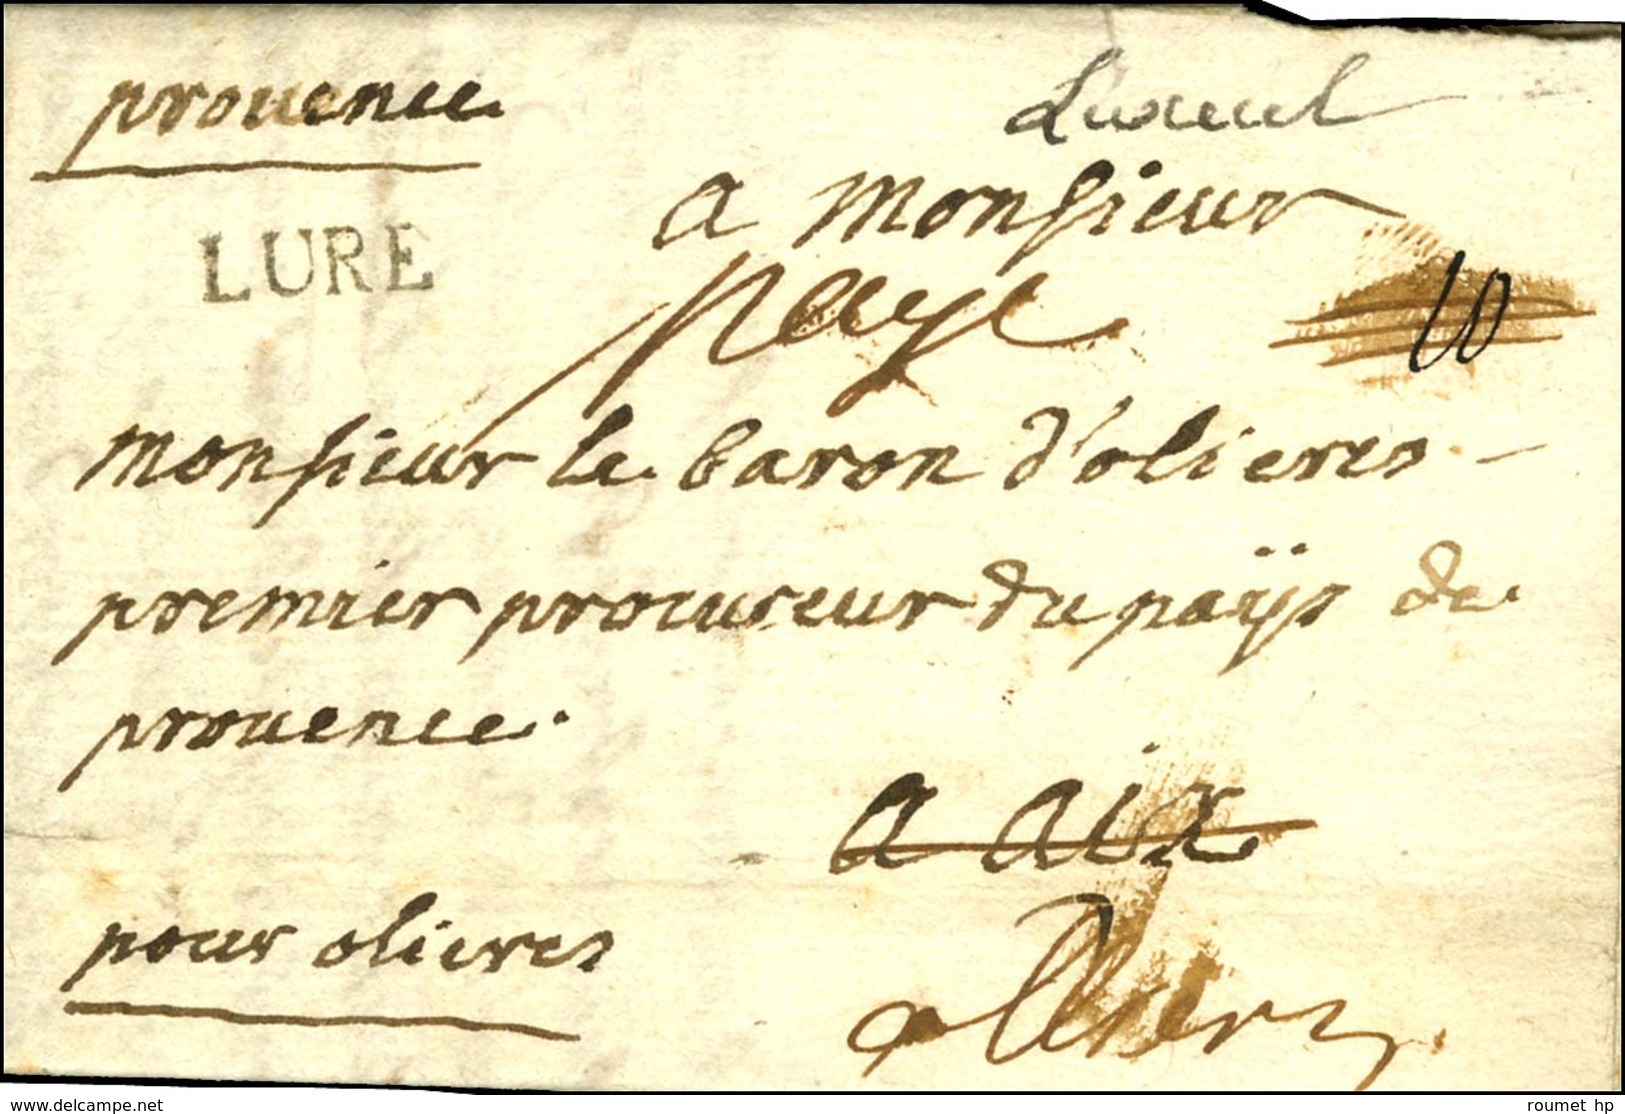 prouence
Luxeul
LURE
a monsieur
10
monsieur le baron d'olieres
premier procureur du païs de
prouence.
a aix
pour olieres
www.delcampe.net
roumet hp